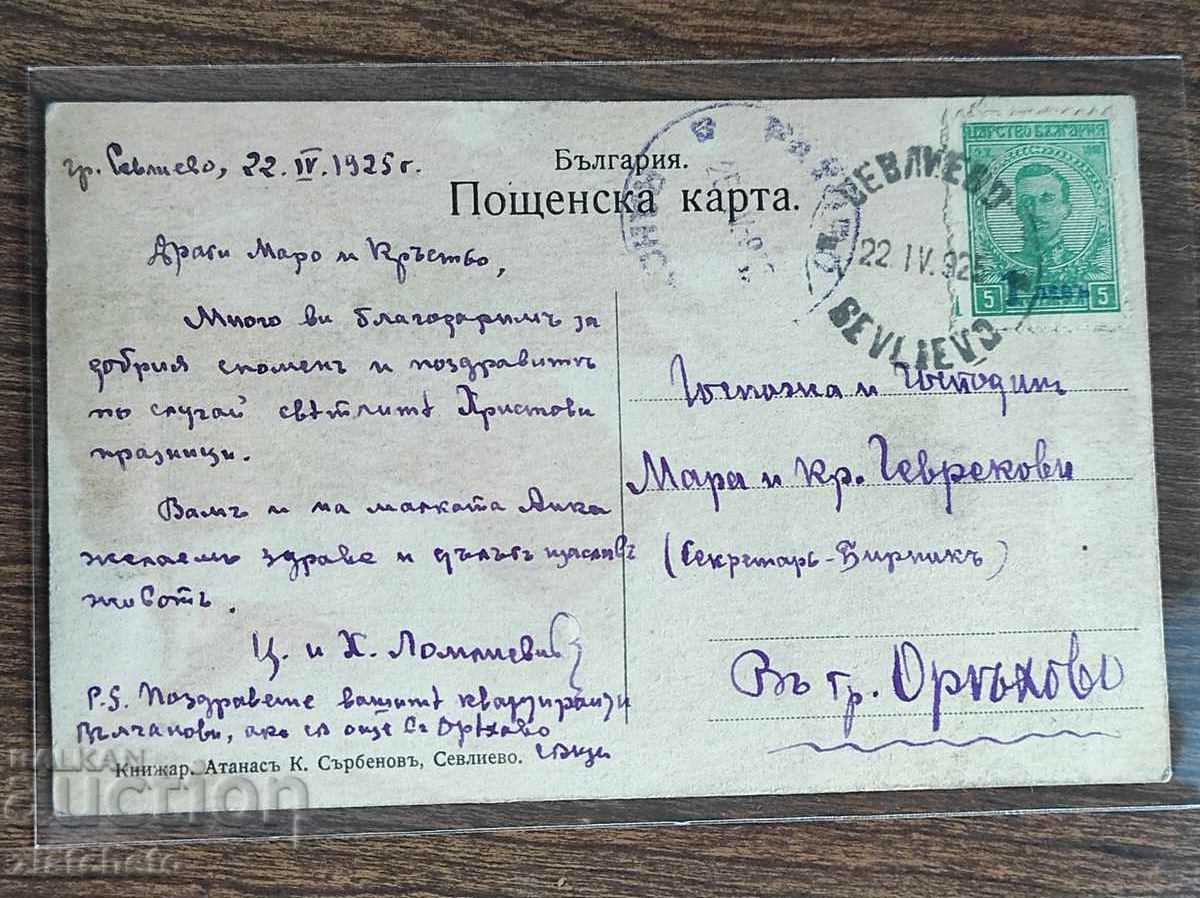 гр. Севлиево, 22. IV. 1925 г.
България.
Пощенска карта.
Драги Маро и Кръстьо,
Много ви благодаримъ за
добрия споменъ и поздравитѣ
по случай свѣтлитѣ Христови
празници.
Вамъ и на малката Анка
желаемъ здраве и дълъгъ щасливъ
животъ.
Ц. и Х.
P.S. Поздравете вашитѣ квартиранзи
Вълчанови, ако са още въ Орѣхово
Книжар. Атанасъ К. Сърбеновъ, Севлиево.
СЕВЛИЕВО
22 IV. 925
SEVLIEVO
ЦАРСТВО БЪЛГАРИЯ
1 ЛЕВЪ
5 5
Госпожа и Господинъ
Мара и Кр. Геврекови
(Секретарь-Бирникъ)
Въ гр. Орѣхово
BALKAN
auction
zlatcheto